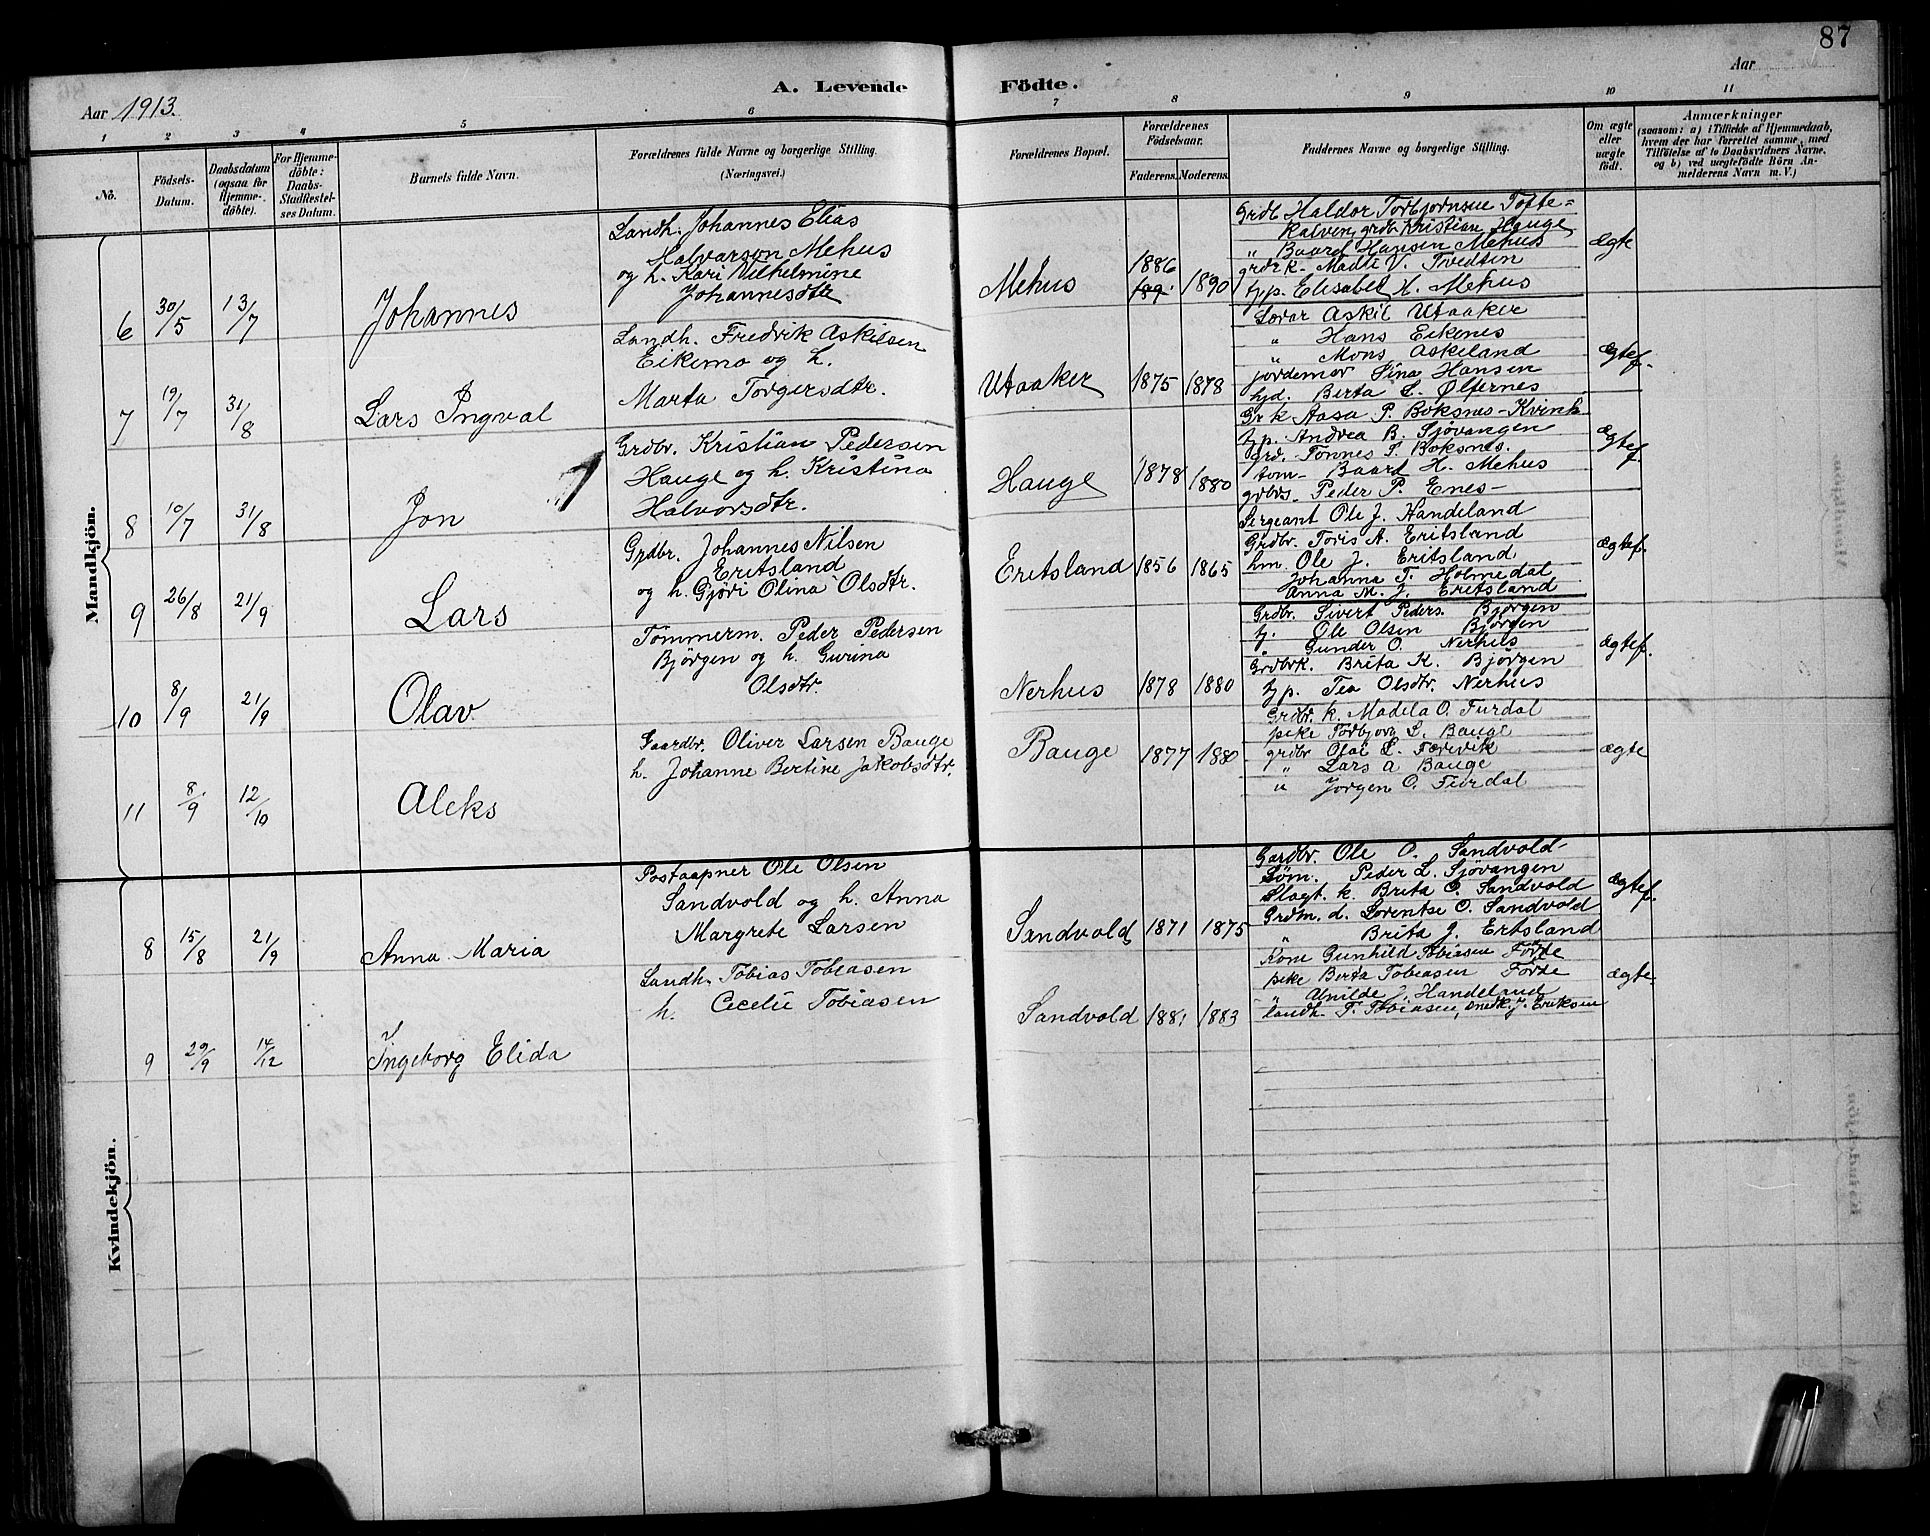 87
A. Levende Födte.
Aar 1913.
Aar
1 2 3 4 5 6 7 8 9 10 11
No.
Födsels-Datum.
Daabsdatum (ogsaa for Hjemme-döbte).
For Hjemme-döbte: Daabs-Stadfæstel-ses Datum.
Barnets fulde Navn.
Forældrenes fulde Navne og borgerlige Stilling. (Næringsvei.)
Forældrenes Bopæl.
Forældrenes Födselsaar.
Faderens. Moderens.
Faddernes Navne og borgerlige Stilling.
Om ægte eller uægte födt.
Anmærkninger
(saasom: a) i Tilfælde af Hjemmedaab, hvem der har forrettet samme, med Tilföielse af to Daabsvidners Navne, og b) ved uægtefödte Börn An-melderens Navn m. V.)
Mandkjön.
6 30/5 13/7 Johannes
Landh. Johannes Elias
Halvarson Mehus
og h. Kari Vilhelmine
Johannesdtr
Mehus 1886 189. 1890
Grdb Haldor Torbjørnsen Tofte-
Kalven, grdb Kristian Hauge
" Baard Hansen Mehus
grdbrk. Madli V. Tvedten
tjp. Elisabet H. Mehus
Ægte
7 19/7 31/8 Lars Ingval
Landh. Fredrik Askilsen
Eikemo og h.
Marta Torgersdtr.
Utaaker 1875 1878
Askil Utaaker
" Hans Eikenes
" Mons Askeland
jordemor Sina Hansen
hjd. Berta L. Ølfernes
Ægtef.
8 10/7 31/8 Jon
Grdbr. Kristian Pedersen
Hauge og h. Kristina
Halvorsdtr.
Hauge 1878 1880
Aasa P. Boksnes-Kvinh
tjp. Andrea B. Sjøvangen
Grd. Tønnes T. Boksnes.
tom- Baard H. Mehus
grdbrs- Peder P. Enes-
Ægtef.
9 26/8 21/9 Lars
Grdbr. Johannes Nilsen
Eritsland
og h. Gjøri Olina Olsdtr.
Eritsland 1856 1865
Sergeant Ole J. Handeland
Grdbr. Toris A. Eritsland
hm. Ole J. Eritsland
Johanna T. Holmedal
Anna M. J. Eritsland
Ægtef.
10 8/9 21/9 Olav
Tømmerm. Peder Pedersen
Bjørgen og h. Gurina
Olsdtr.
Nerhus 1878 1880
Grdbr. Sivert Peders. Bjørgen
tj. Ole Olsen Bjørgen
" Gunder O. Nerhus
Grdbrk. Brita K. Bjørgen
tjp. Tea Olsdtr. Nerhus
ægtef.
11 8/9 12/10 Aleks
Gaardbr. Oliver Larsen Bauge
h. Johanne Bertine Jakobsdtr.
Bauge 1877 1880
Grdbr. k. Madela O. Furdal
pike Torbjorg L. Bauge
grdbr Olai L. Færevik
" Lars a Bauge
" Jørgen O. Furdal
ægte
Kvindekjön.
8 15/8 21/9 Anna Maria
Postaapner Ole Olsen
Sandvold og h. Anna
Margrete Larsen
Sandvold 1871 1875
Gardbr. Ole O. Sandvold-
Søm. Peder L. Sjøvangen
Slagt. k. Brita O. Sandvold
Grdm. d. Lorentse O. Sandvold
" Brita J. Ertsland
ægtef.
9 29/9 14/12 Ingeborg Elida
Landh. Tobias Tobiasen
h. Cecelie Tobiasen
Sandvold 1881 1883
Kone Gunhild Tobiasen Førde
pike Berta Tobiasen Førde
" J. Handeland
landh. T. Tobiasen, snedk. J. Eriksen
ægte.